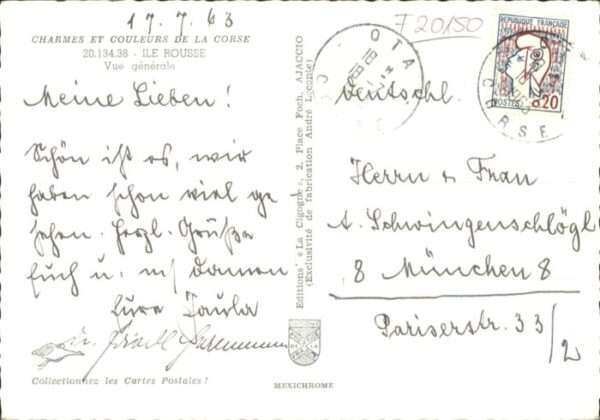 17.7.63
F20150
CHARMES ET COULEURS DE LA CORSE
20.134.38 - ILE ROUSSE
Vue générale
Meine Lieben!
Schön ist es, wir
haben schon viel ge
sehen. Herzl. Grüße
Euch u.
Eure Paula
u.
Collectionnez les Cartes Postales !
Editions « La Cigogne », 2, Place Foch, AJACCIO
(Exclusivité de fabrication André Leconte)
MEXICHROME
OTA
CORSE
REPUBLIQUE FRANÇAISE
POSTES 0,20
Deutschl.
Herrn u Frau
A. Schwingenschlögl
8 München 8
Pariserstr. 33/2